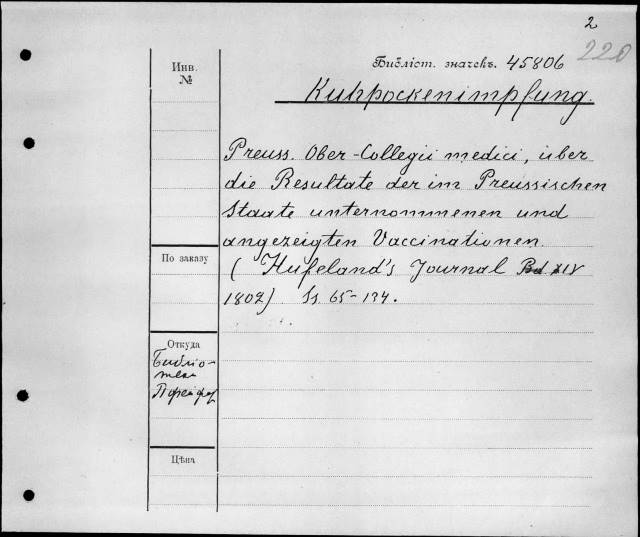 2
220
Инв.
№
Библіот. значекъ. 45806
Kuhpockenimpfung.
Preuss. Ober-Collegii medici, über
die Resultate der im Preussischen
Staate unternommenen und
angezeigten Vaccinationen.
(Hufeland's Journal Bd XIV
1802) Ss. 65-134.
По заказу
Откуда
Библіо-
тека
Цѣна